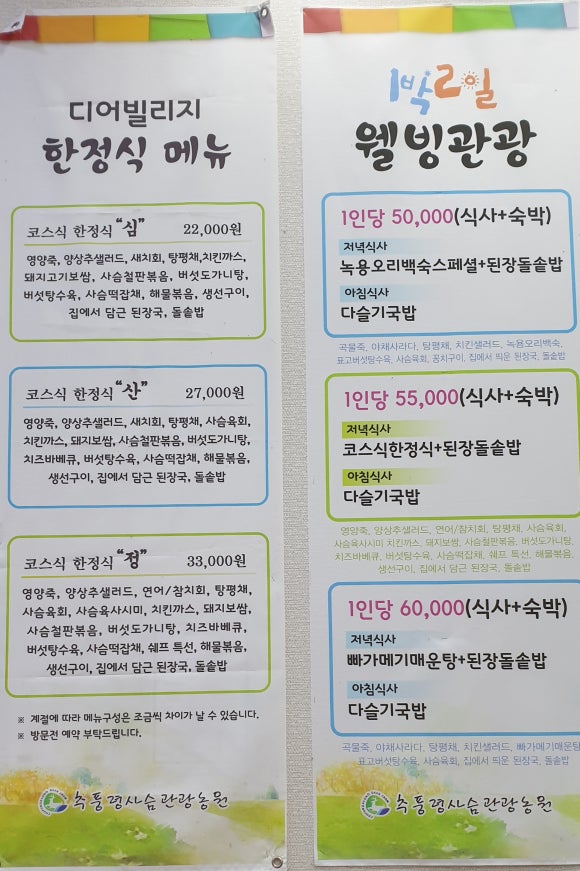 디어빌리지
한정식 메뉴
코스식 한정식 “심” 22,000원
영양죽, 양상추샐러드, 새치회, 탕평채,치킨까스,
돼지고기보쌈, 사슴철판볶음, 버섯도가니탕,
버섯탕수육, 사슴떡잡채, 해물볶음, 생선구이,
집에서 담근 된장국, 돌솥밥
코스식 한정식 “산” 27,000원
영양죽, 양상추샐러드, 새치회, 탕평채, 사슴육회,
치킨까스, 돼지보쌈, 사슴철판볶음, 버섯도가니탕,
치즈바베큐, 버섯탕수육, 사슴떡잡채, 해물볶음,
생선구이, 집에서 담근 된장국, 돌솥밥
코스식 한정식 “정” 33,000원
영양죽, 양상추샐러드, 연어/참치회, 탕평채,
사슴육회, 사슴육사시미, 치킨까스, 돼지보쌈,
사슴철판볶음, 버섯도가니탕, 치즈바베큐,
버섯탕수육, 사슴떡잡채, 쉐프 특선, 해물볶음,
생선구이, 집에서 담근 된장국, 돌솥밥
※ 계절에 따라 메뉴구성은 조금씩 차이가 날 수 있습니다.
※ 방문전 예약 부탁드립니다.
추풍령사슴관광농원
1박2일
웰빙관광
1인당 50,000(식사+숙박)
저녁식사
녹용오리백숙스페셜+된장돌솥밥
아침식사
다슬기국밥
곡물죽, 야채사라다, 탕평채, 치킨샐러드, 녹용오리백숙,
표고버섯탕수육, 사슴육회, 꽁치구이, 집에서 띄운 된장국, 돌솥밥
1인당 55,000(식사+숙박)
저녁식사
코스식한정식+된장돌솥밥
아침식사
다슬기국밥
영양죽, 양상추샐러드, 연어/참치회, 탕평채, 사슴육회,
사슴육사시미 치킨까스, 돼지보쌈, 사슴철판볶음, 버섯도가니탕,
치즈바베큐, 버섯탕수육, 사슴떡잡채, 쉐프 특선, 해물볶음,
생선구이, 집에서 담근 된장국, 돌솥밥
1인당 60,000(식사+숙박)
저녁식사
빠가메기매운탕+된장돌솥밥
아침식사
다슬기국밥
곡물죽, 야채사라다, 탕평채, 치킨샐러드, 빠가메기매운탕
표고버섯탕수육, 사슴육회, 집에서 띄운 된장국, 돌솥밥
추풍령사슴관광농원